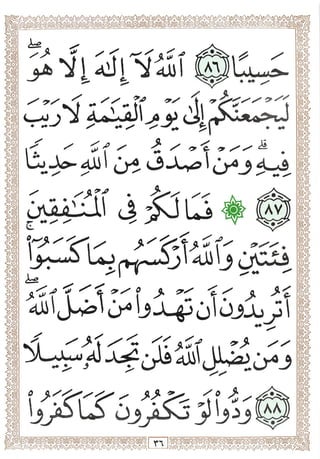 حَسِيبًا ٨٦ ٱللَّهُ لَآ إِلَٰهَ إِلَّا هُوَۖ
لَيَجْمَعَنَّكُمْ إِلَىٰ يَوْمِ ٱلْقِيَٰمَةِ لَا رَيْبَ
فِيهِۗ وَمَنْ أَصْدَقُ مِنَ ٱللَّهِ حَدِيثًا
٨٧ ۞ فَمَا لَكُمْ فِى ٱلْمُنَٰفِقِينَ
فِئَتَيْنِ وَٱللَّهُ أَرْكَسَهُم بِمَا كَسَبُوٓا۟ۚ
أَتُرِيدُونَ أَن تَهْدُوا۟ مَنْ أَضَلَّ ٱللَّهُۖ
وَمَن يُضْلِلِ ٱللَّهُ فَلَن تَجِدَ لَهُۥ سَبِيلًا
٨٨ وَدُّوا۟ لَوْ تَكْفُرُونَ كَمَا كَفَرُوا۟
٣٦